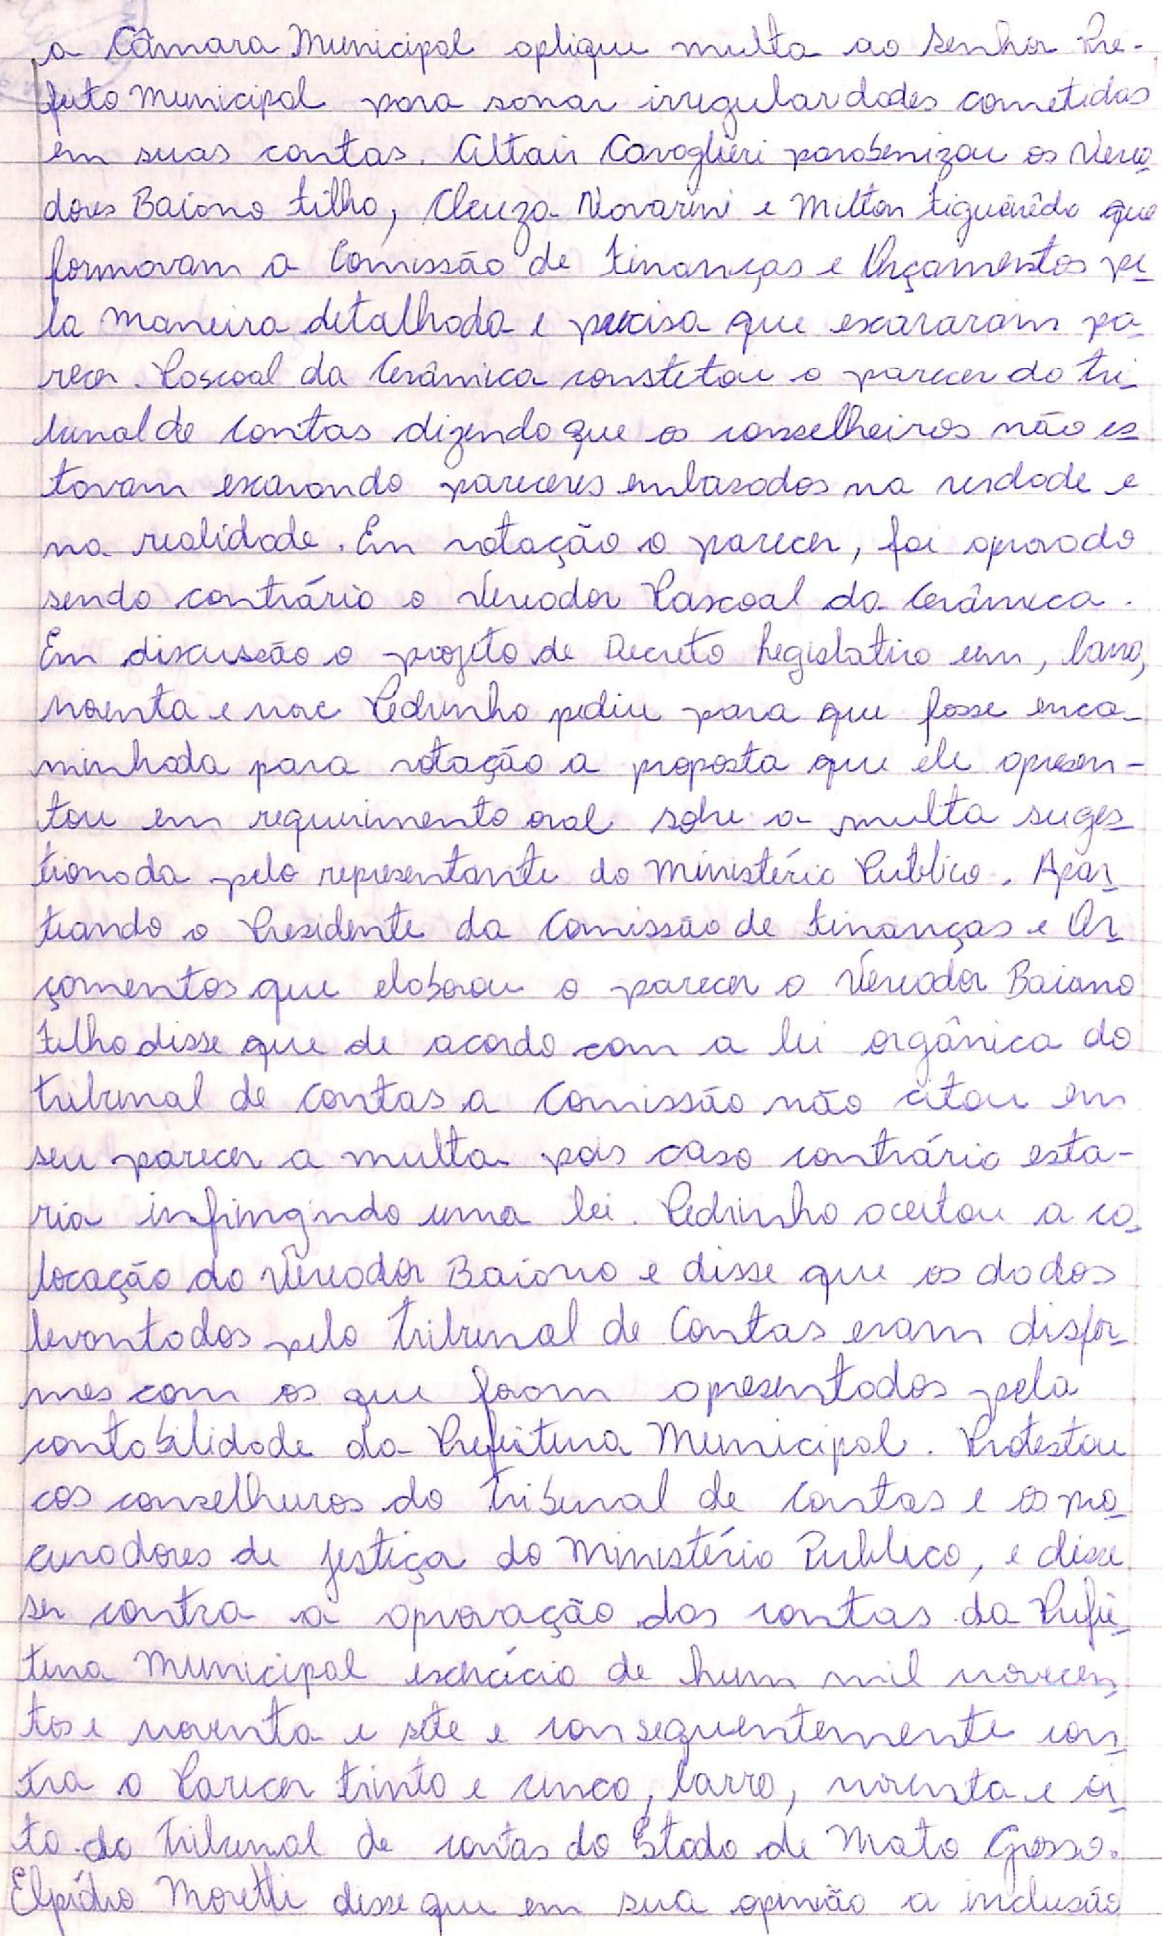 a Câmara Municipal aplique multa ao Senhor Pre-
feito Municipal para sanar irregularidades cometidas
em suas contas. Altair Cavaglieri parabenizou os Verea
dores Baiano Filho, Cleuza Novarini e Milton Figueirêdo que
formavam a Comissão de Finanças e Orçamentos pe
la maneira detalhada e precisa que exararam pa
recer. Pascoal da Cerâmica constetou o parecer do Tri
bunal de Contas dizendo que os conselheiros não es
tavam exarando pareceres embasados na verdade e
na realidade. Em votação o parecer, foi aprovado
sendo contrário o Vereador Pascoal da Cerâmica.
Em discussão o projeto de Decreto Legislativo um, barra,
noventa e nove Pedrinho pediu para que fosse enca-
minhada para votação a proposta que ele apresen-
tou em requerimento oral sobre a multa suges
tionada pelo representante do Ministério Publico. Apar
teando o Presidente da Comissão de Finanças e Or
çamentos que elaborou o parecer o Vereador Baiano
Filho disse que de acordo com a lei orgânica do
Tribunal de Contas a Comissão não citou em
seu parecer a multa pois caso contrário esta-
ria infringindo uma lei. Pedrinho aceitou a co
locação do Vereador Baiano e disse que os dados
levantados pelo Tribunal de Contas eram disfor
mes com os que foram apresentados pela
contabilidade da Prefeitura Municipal. Protestou
aos conselheiros do Tribunal de Contas e os pro
curadores de justiça do Ministério Publico, e disse
ser contra a aprovação das contas da Prefei
tura Municipal exercício de hum mil novecen
tos e noventa e sete e consequentemente con
tra o Parecer trinta e cinco, barra, noventa e oi
to do Tribunal de contas do Estado de Mato Grosso.
Elpídio Moretti disse que em sua opinião a inclusão